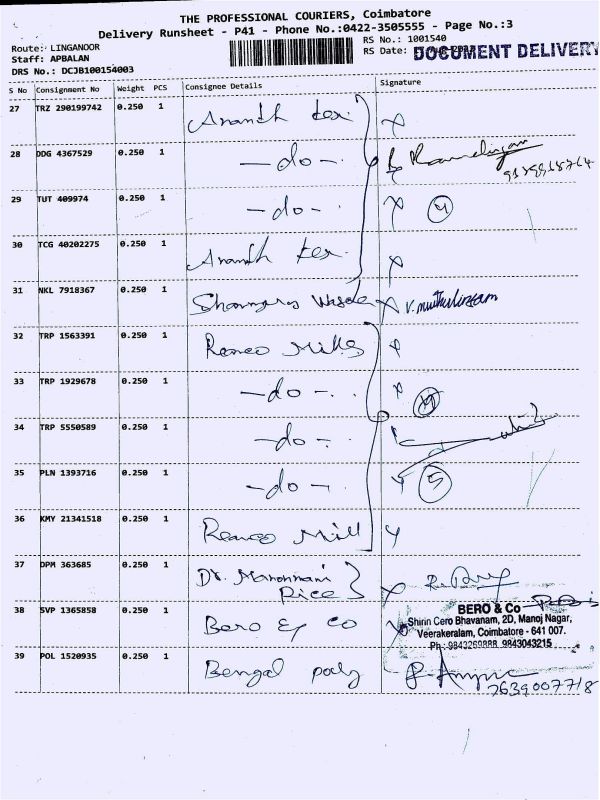 THE PROFESSIONAL COURIERS, Coimbatore
Delivery Runsheet - P41 - Phone No.:0422-3505555 - Page No.:3
Route: LINGANOOR
Staff: APBALAN
DRS No.: DCJB100154003
RS No.: 1001540
RS Date:
DOCUMENT DELIVERY
S No Consignment No Weight PCS Consignee Details Signature
27 TRZ 290199742 0.250 1 Ananth tex
28 DDG 4367529 0.250 1 -do-
29 TUT 409974 0.250 1 -do- 4
30 TCG 40202275 0.250 1 Ananth tex
31 NKL 7918367 0.250 1 V. muthulingam
32 TRP 1563391 0.250 1 Remco Mills
33 TRP 1929678 0.250 1 -do-
34 TRP 5550589 0.250 1 -do-
35 PLN 1393716 0.250 1 -do- 5
36 KMY 21341518 0.250 1 Remco Mill
37 DPM 363685 0.250 1 Dr.
38 SVP 1365858 0.250 1 Bero & Co
BERO & Co
Shirin Cero Bhavanam, 2D, Manoj Nagar,
Veerakeralam, Coimbatore - 641 007.
Ph : 9843269888, 9843043215
39 POL 1520935 0.250 1 Bengal poly
7639007718